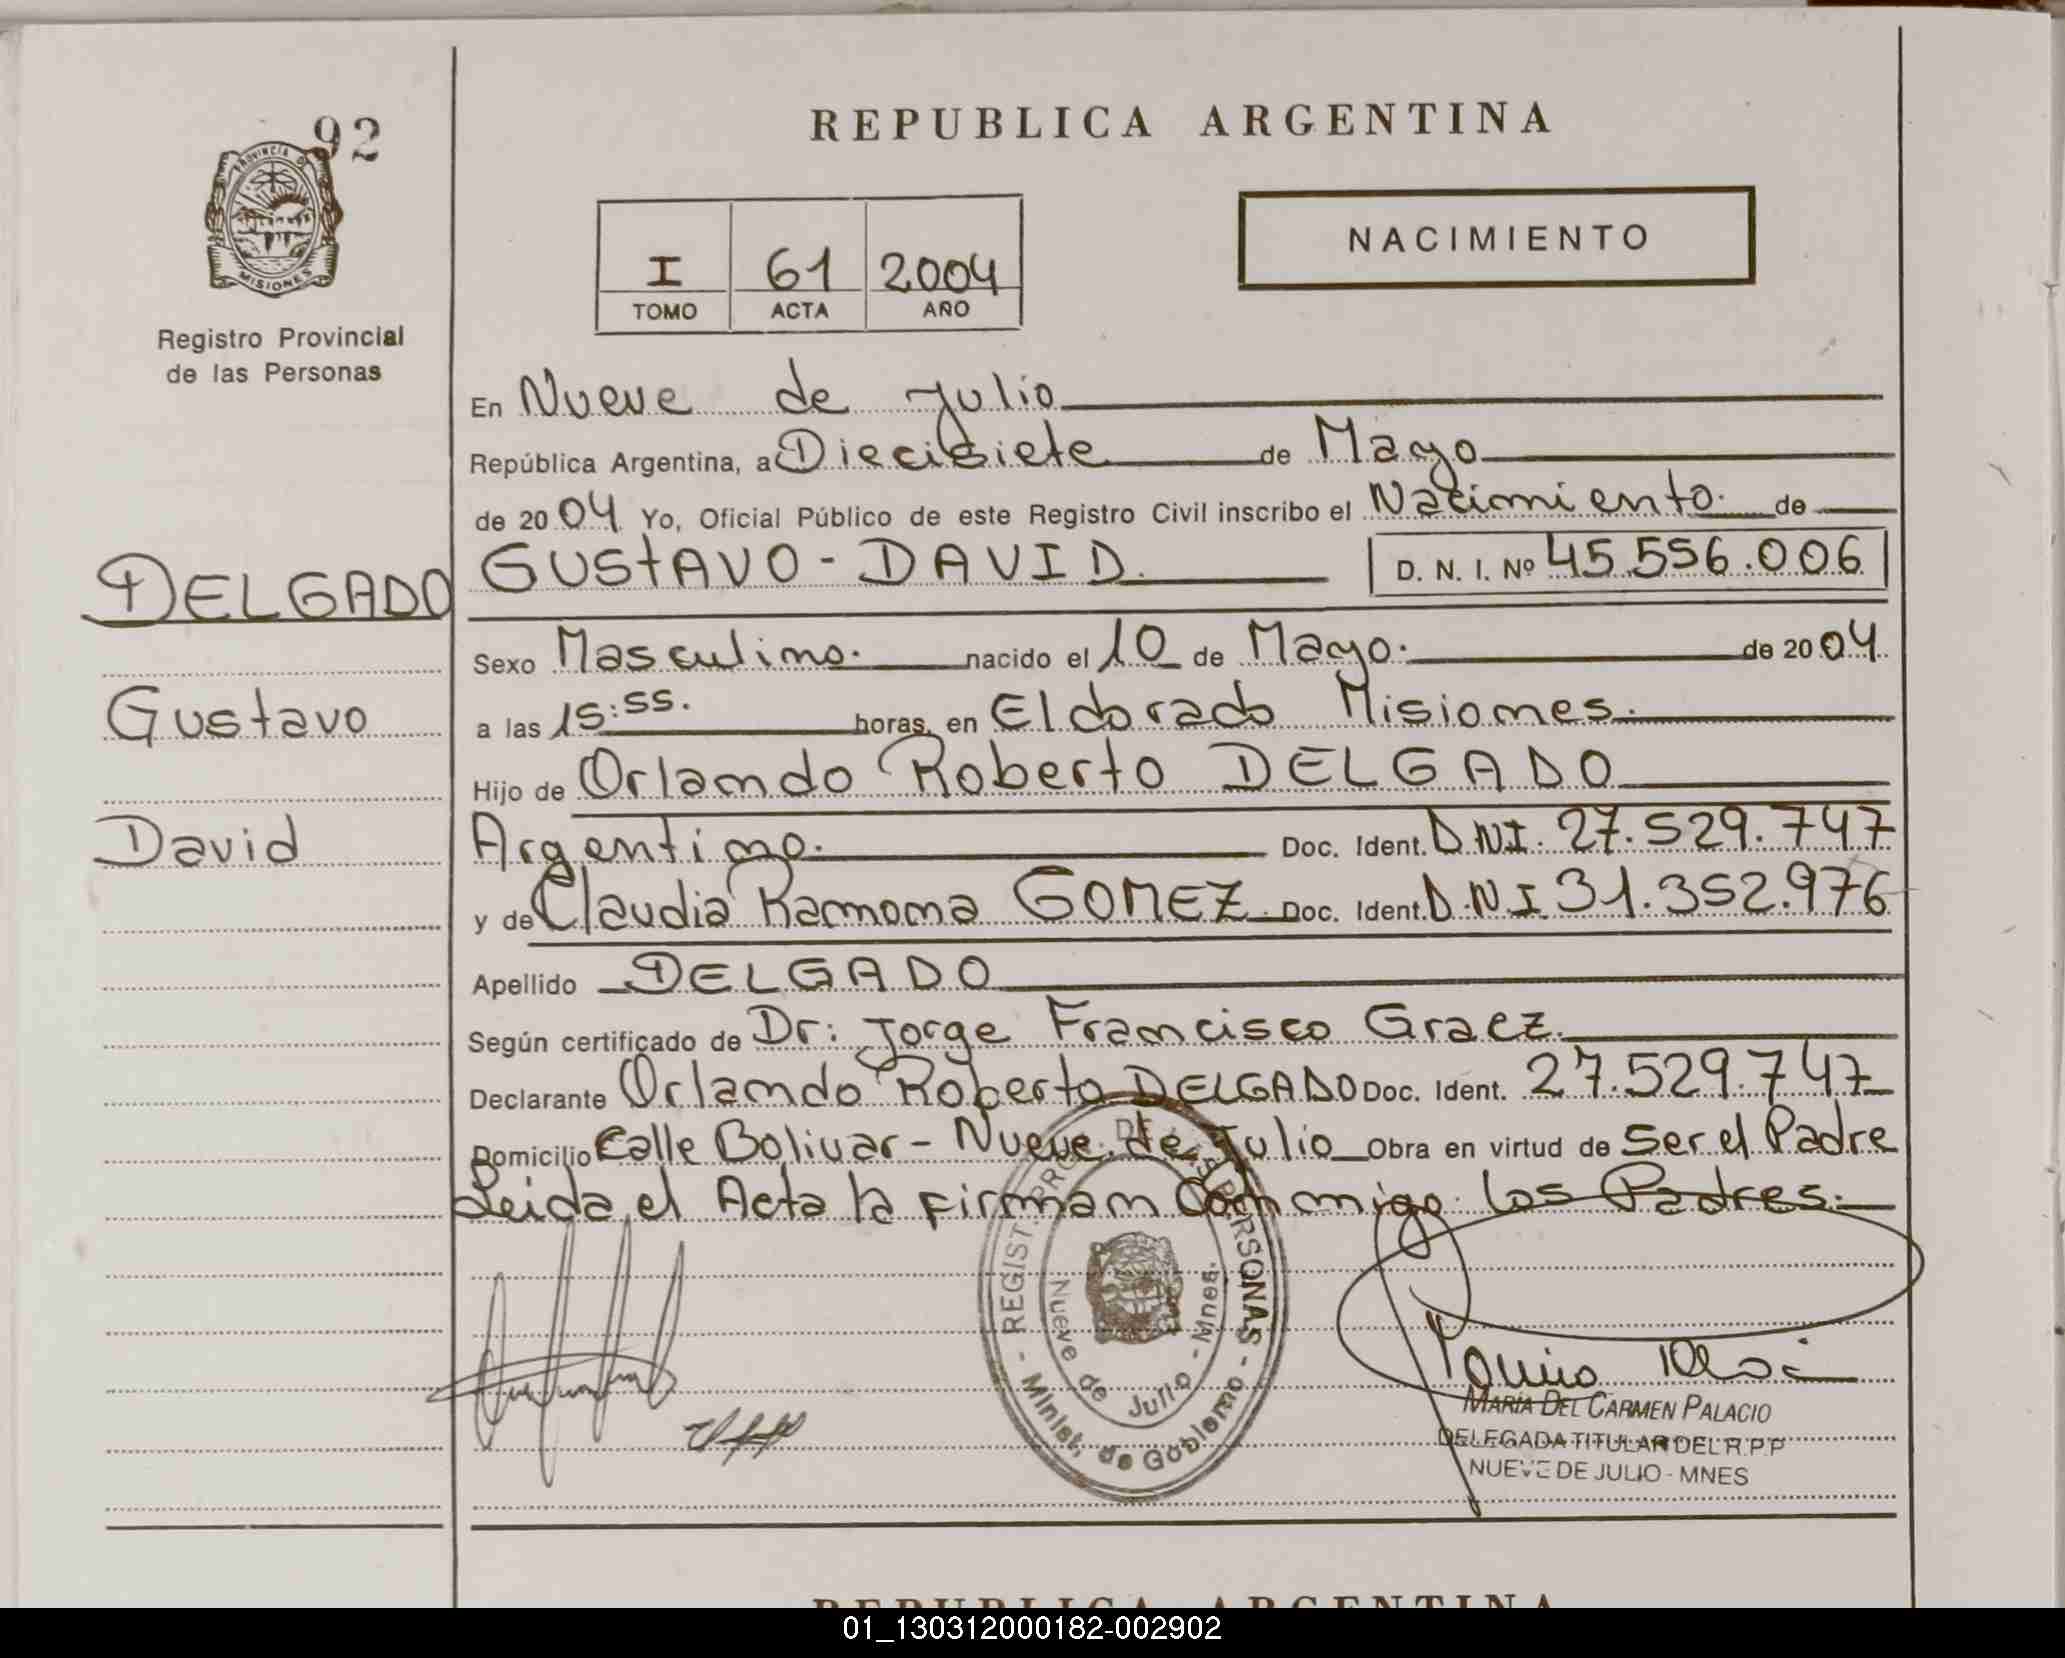 92
REPUBLICA ARGENTINA
PROVINCIA DE MISIONES
Registro Provincial
de las Personas
I 61 2004
TOMO ACTA AÑO
NACIMIENTO
En Nueve de Julio
República Argentina, a Diecisiete de Mayo
de 2004 Yo, Oficial Público de este Registro Civil inscribo el Nacimiento. de
DELGADO
GUStAVO - DAVID.
D. N. I. Nº 45.556.006
Sexo Masculino. nacido el 10 de Mayo. de 2004
Gustavo
a las 15:55. horas, en Eldorado Misiones.
Hijo de Orlando Roberto DELGADO
David
Argentino. Doc. Ident. D.NI. 27.529.747
y de Claudia Ramona GOMEZ. Doc. Ident. D.NI 31.352.976
Apellido DELGADO
Según certificado de Dr: Jorge Francisco Graez.
Declarante Orlando Roberto DELGADO Doc. Ident. 27.529.747
Domicilio Calle Bolivar - Nueve de Julio Obra en virtud de Ser el Padre
Leida el Acta la firman Conmigo los Padres.
REGIST. PRO DE LAS PERSONAS
- Minist. de Gobierno -
Nueve de Julio - Mnes.
MARÍA DEL CARMEN PALACIO
DELEGADA TITULAR DEL R.P.P
NUEVE DE JULIO - MNES
REPUBLICA ARGENTINA
01_130312000182-002902